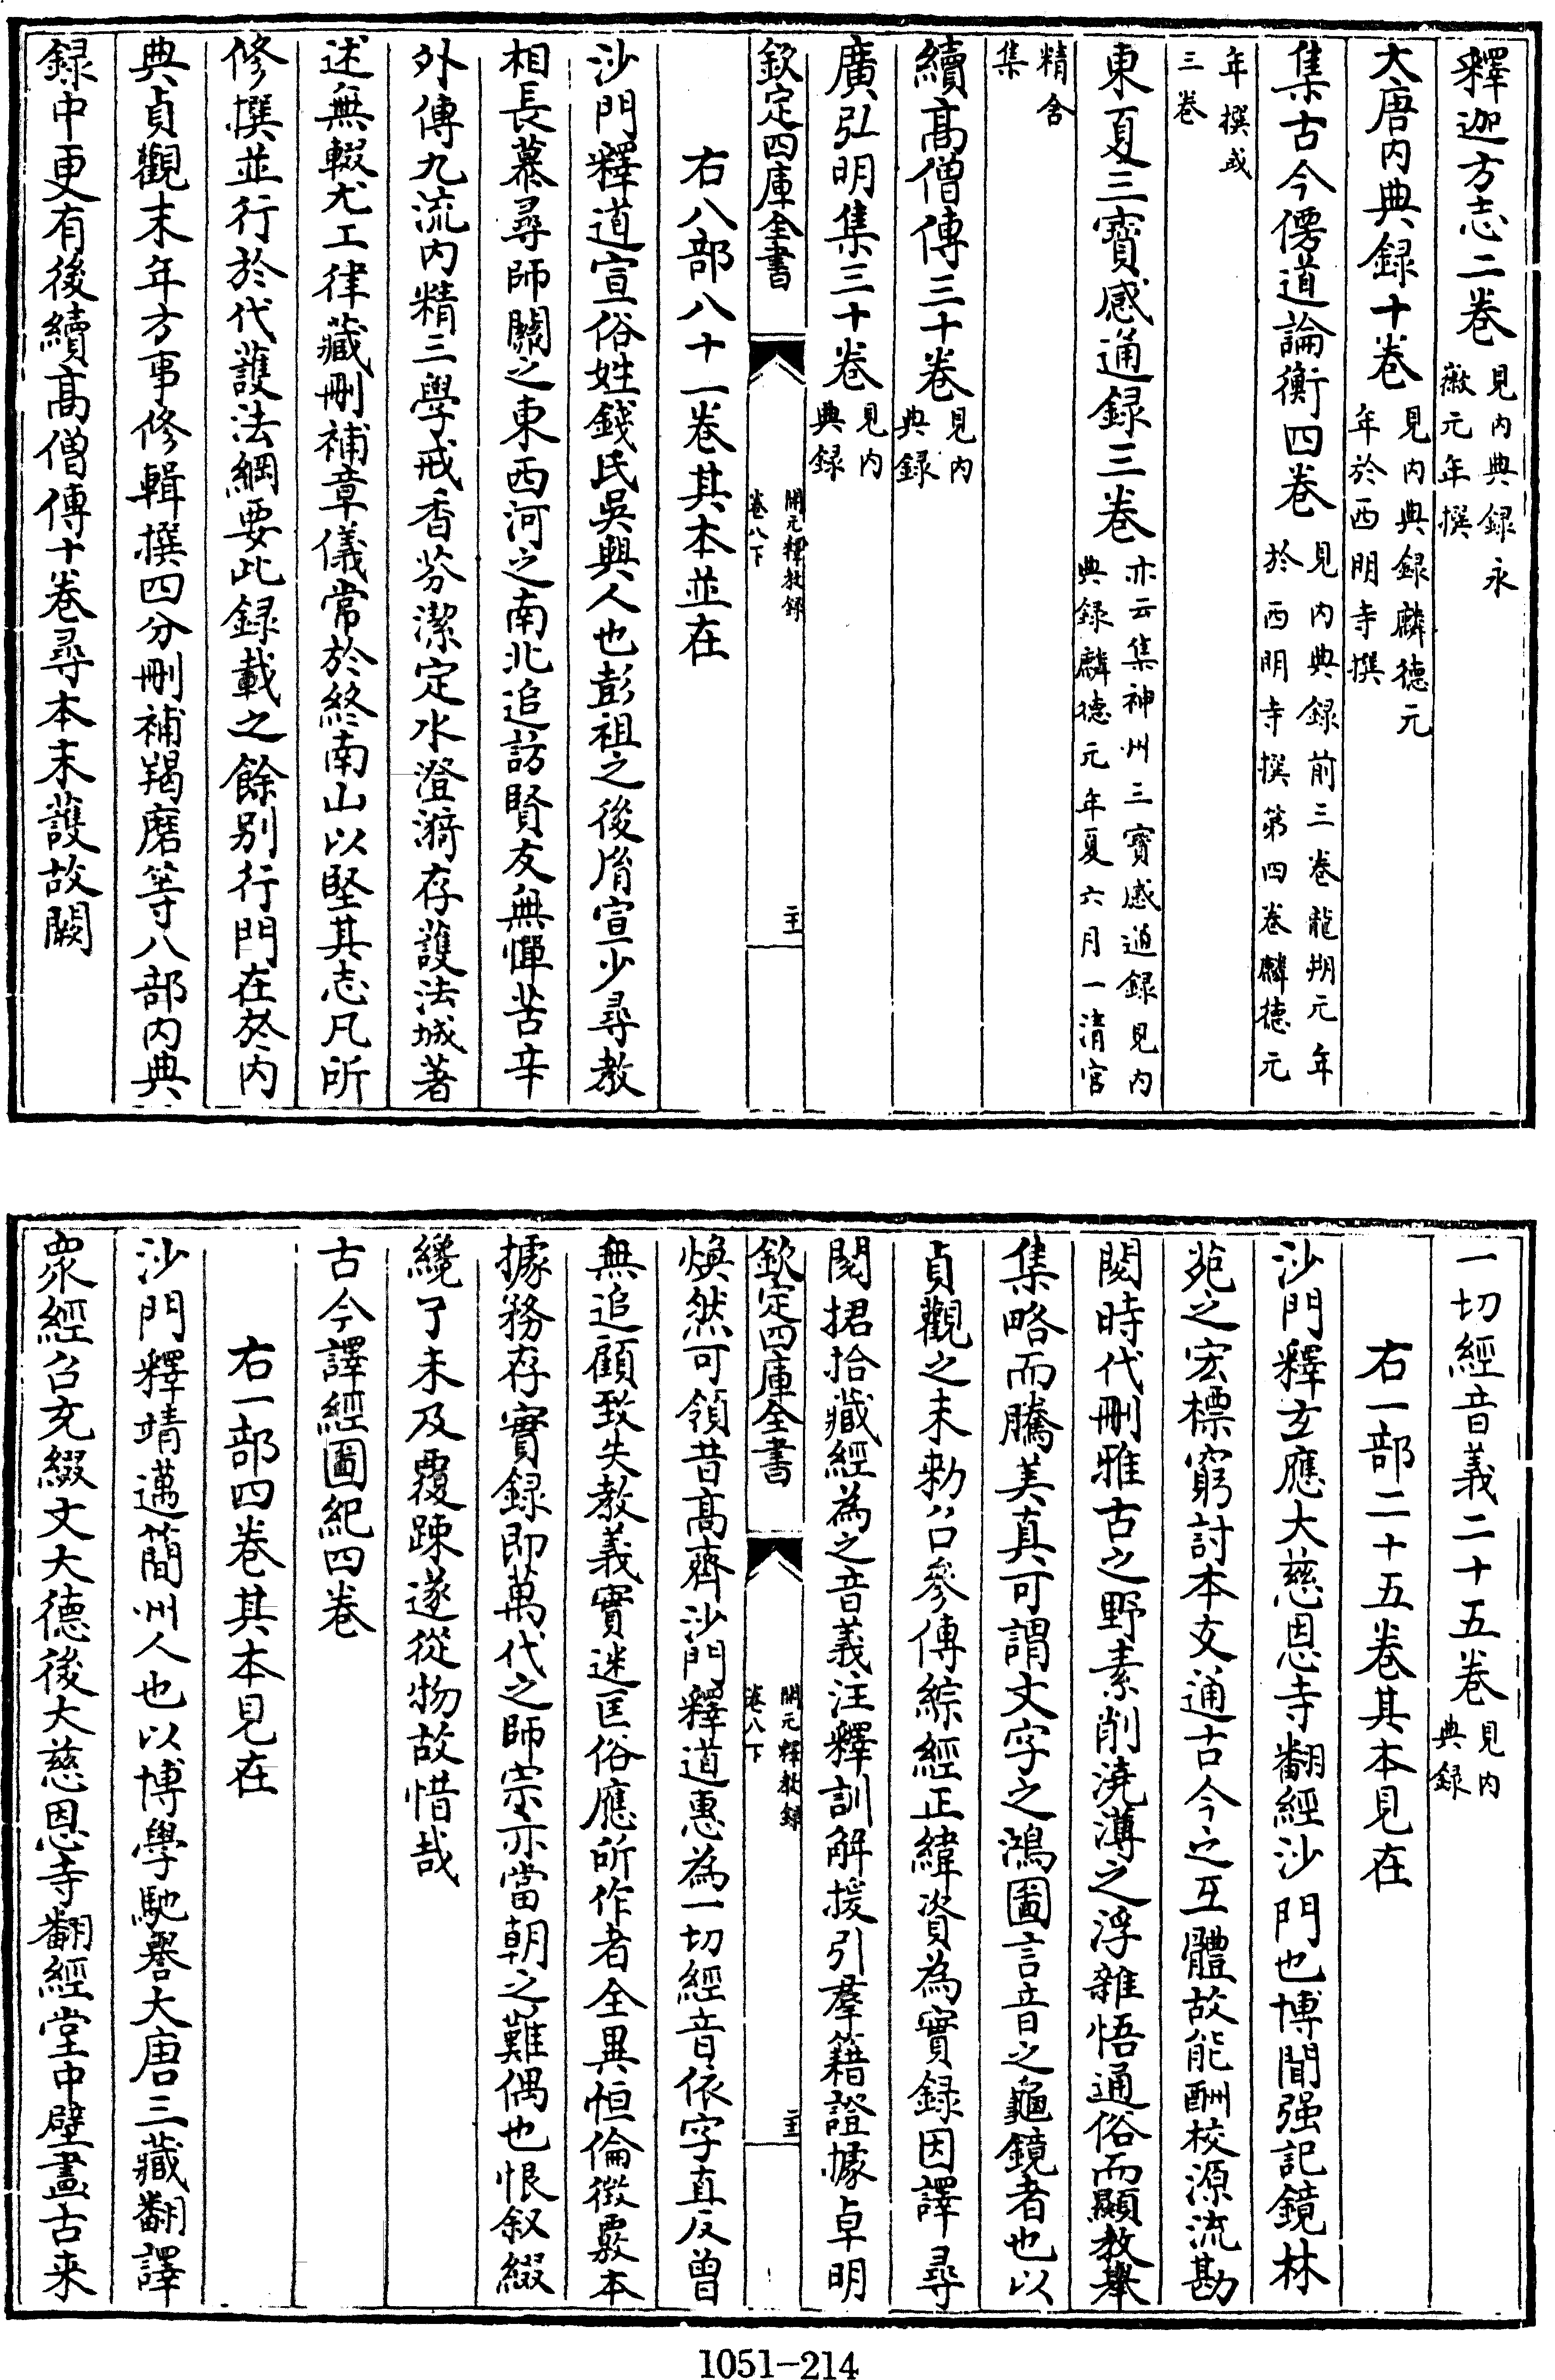 釋迦方志二卷見内典録永徽元年撰
大唐内典録十卷見内典録麟德元年於西明寺撰
集古今僊道論衡四卷見内典録前三卷龍朔元年於西明寺撰第四卷麟德元
年撰或三卷
東夏三寳感通録三卷亦云集神州三寳感通録見内典録麟德元年夏六月一清宫
精舍集
續髙僧傳三十卷見内典録
廣弘明集三十卷見内典録
欽定四庫全書 開元釋教録卷八下
右八部八十一卷其本並在
沙門釋道宣俗姓錢氏吳興人也彭祖之後胤宣少尋教
相長慕尋師關之東西河之南北追訪賢友無憚苦辛
外傳九流内精三學戒香芬潔定水澄漪存護法城著
述無輟尤工律藏刪補章儀常於終南山以堅其志凡所
修撰並行於代護法綱要此録載之餘别行門在於内
典貞觀末年方事修輯撰四分刪補羯磨等八部内典
録中更有後續髙僧傳十卷尋本未䕶故闕
一切經音義二十五卷見内典録
右一部二十五卷其本見在
沙門釋玄應大慈恩寺翻經沙門也博聞强記鏡林
苑之宏標窮討本支通古今之互體故能酬校源流勘
閲時代刪雅古之野素削澆薄之浮雜悟通俗而顯教舉
集略而騰美真可謂文字之鴻圖言音之龜鏡者也以
貞觀之末勅召參傳綜經正緯資為實録因譯尋
閲捃拾藏經為之音義注釋訓解援引羣籍證據卓明
欽定四庫全書 開元釋教録卷八下
煥然可領昔髙齊沙門釋道惠為一切經音依字直反曾
無追顧致失教義寔迷匡俗應所作者全異恒倫徴覈本
據務存實録即萬代之師宗亦當朝之難偶也恨叙綴
纔了未及覆疎遂從物故惜哉
古今譯經圖紀四卷
右一部四卷其本見在
沙門釋靖邁簡州人也以博學馳譽大唐三藏翻譯
衆經召充綴文大德後大慈恩寺翻經堂中壁畫古来
1051-214